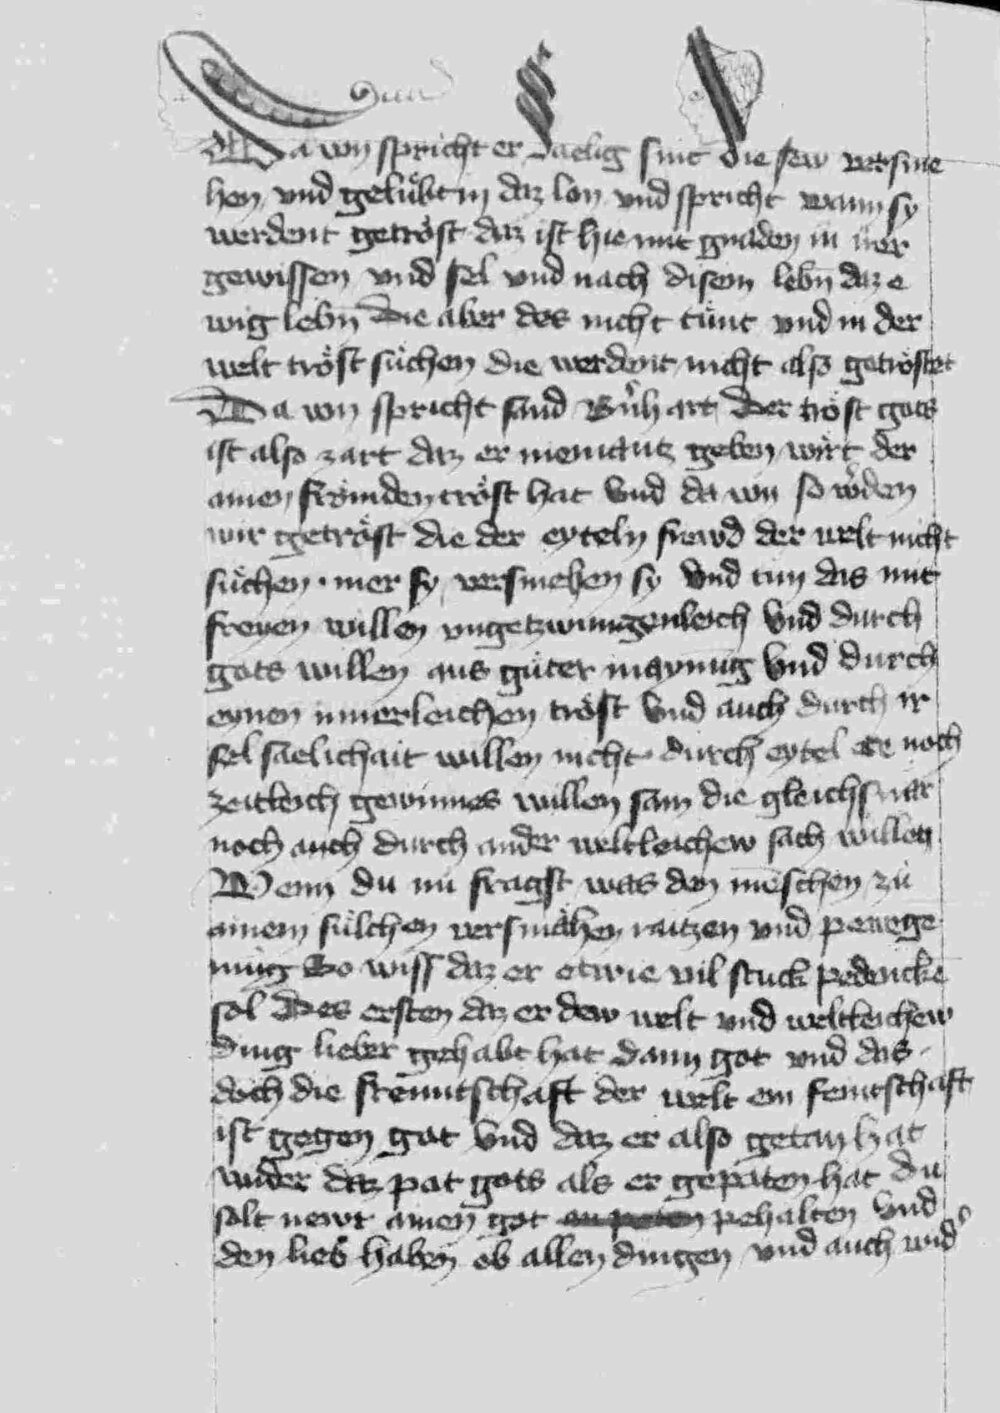 Da von spricht er Saelig sint die sew versme
hen vnd gelübt in daz lon vnd spricht wann sy
werdent getröst daz ist hie mit gnaden in irer
gewissen vnd sel vnd nach disem lebn̄ daz e
wig lebn̄ Die aber des nicht tünt vnd in der
welt tröst süchen die werdent nicht also getröstet
Da von spricht sand Bn̉hart Der tröst gots
ist also zart daz er niemantz geben wirt der
ainen frömden tröst hat Vnd da von so wͦden
wir getröst die der eyteln frewd der welt nicht
süchen · mer sy versmehen sy Vnd tun das mit
freyen willen vngetzwungenleich Vnd durch
gots willen aus güter maynūg Vnd durch
eynen innerleichen tröst Vnd auch durch ir
sel saelichait willen nicht durch eytel ere noch
zeitleich gewinnes willen sam die gleichsnär
noch auch durch ander weltleichew sach willen
Wenn du nu fragst was den mēschen zü
ainem sülchen versmähen raitzen vnd pewegē
müg So wiss daz er etwie vil stuck pedenckē
sol Des ersten daz er dew welt vnd weltleichew
ding lieber gehabt hat dann got vnd das
doch die freuntschaft der welt ein feintschaft
ist gegen got Vnd daz er also getan hat
wider daz pat gots als er gepaten hat du
solt newr ainen got an peten pehalten Vnd
den lieb haben ob allen dingen vnd auch wid̉